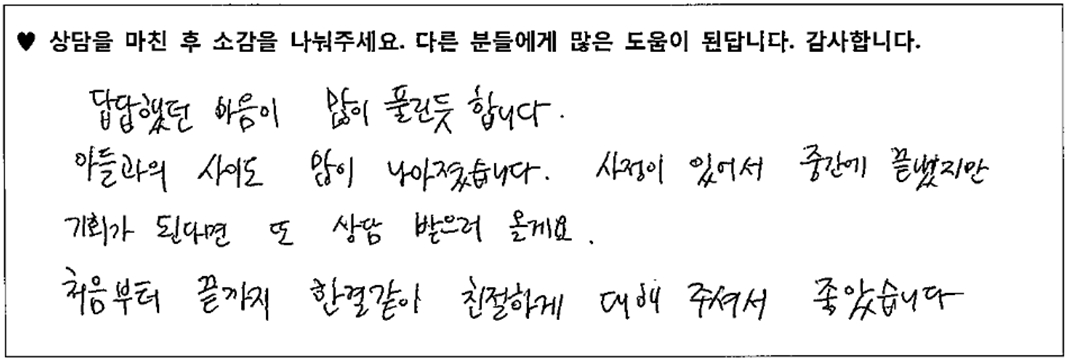 ♥ 상담을 마친 후 소감을 나눠주세요. 다른 분들에게 많은 도움이 된답니다. 감사합니다.
답답했던 마음이 많이 풀린듯 합니다.
아들과의 사이도 많이 나아졌습니다. 사정이 있어서 중간에 끝냈지만
기회가 된다면 또 상담 받으러 올게요.
처음부터 끝까지 한결같이 친절하게 대해 주셔서 좋았습니다